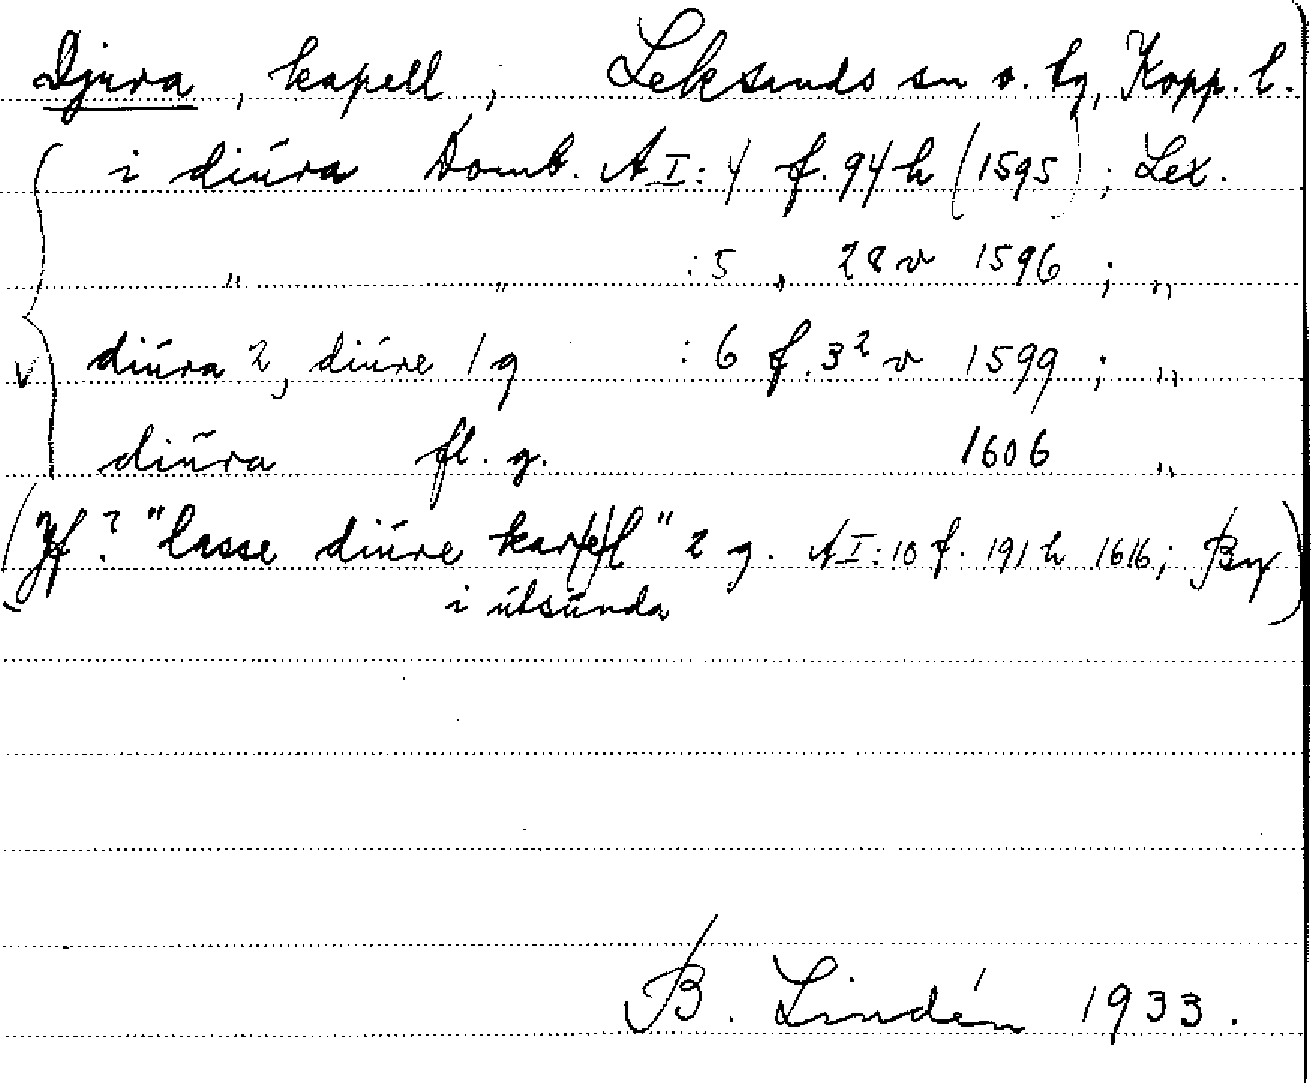 Djura, kapell, Leksands sn o. tg, Kopp. l.
i diúra Domb. A I:4 f. 94 h (1595); Lex.
„ „ :5 „ 28 v 1596 ; „
v diúra 2, diúre 1 g :6 f. 32 v 1599 ; „
diūra fl. g. 1606 „
(Jf? "lasse diúre kar(e)l" 2 g. A I:10 f. 191 h 1616; By)
i útsúnda
B. Lindén 1933.